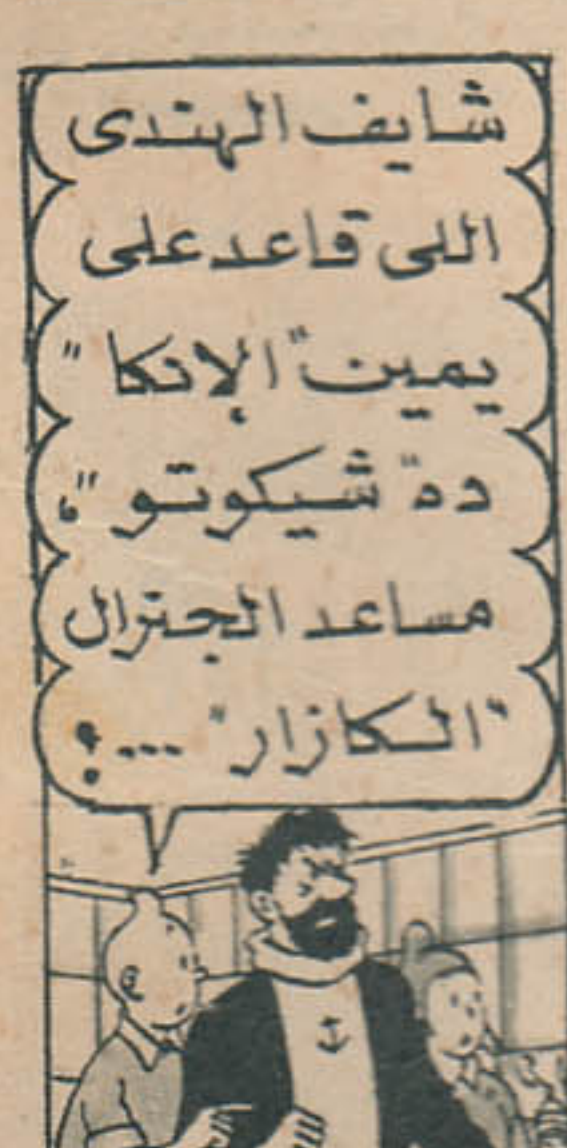 شايف الهندى
اللى قاعد على
يمين "الإنكا"
ده "شيكوتو"،
مساعد الجنرال
"الكازار" ...؟